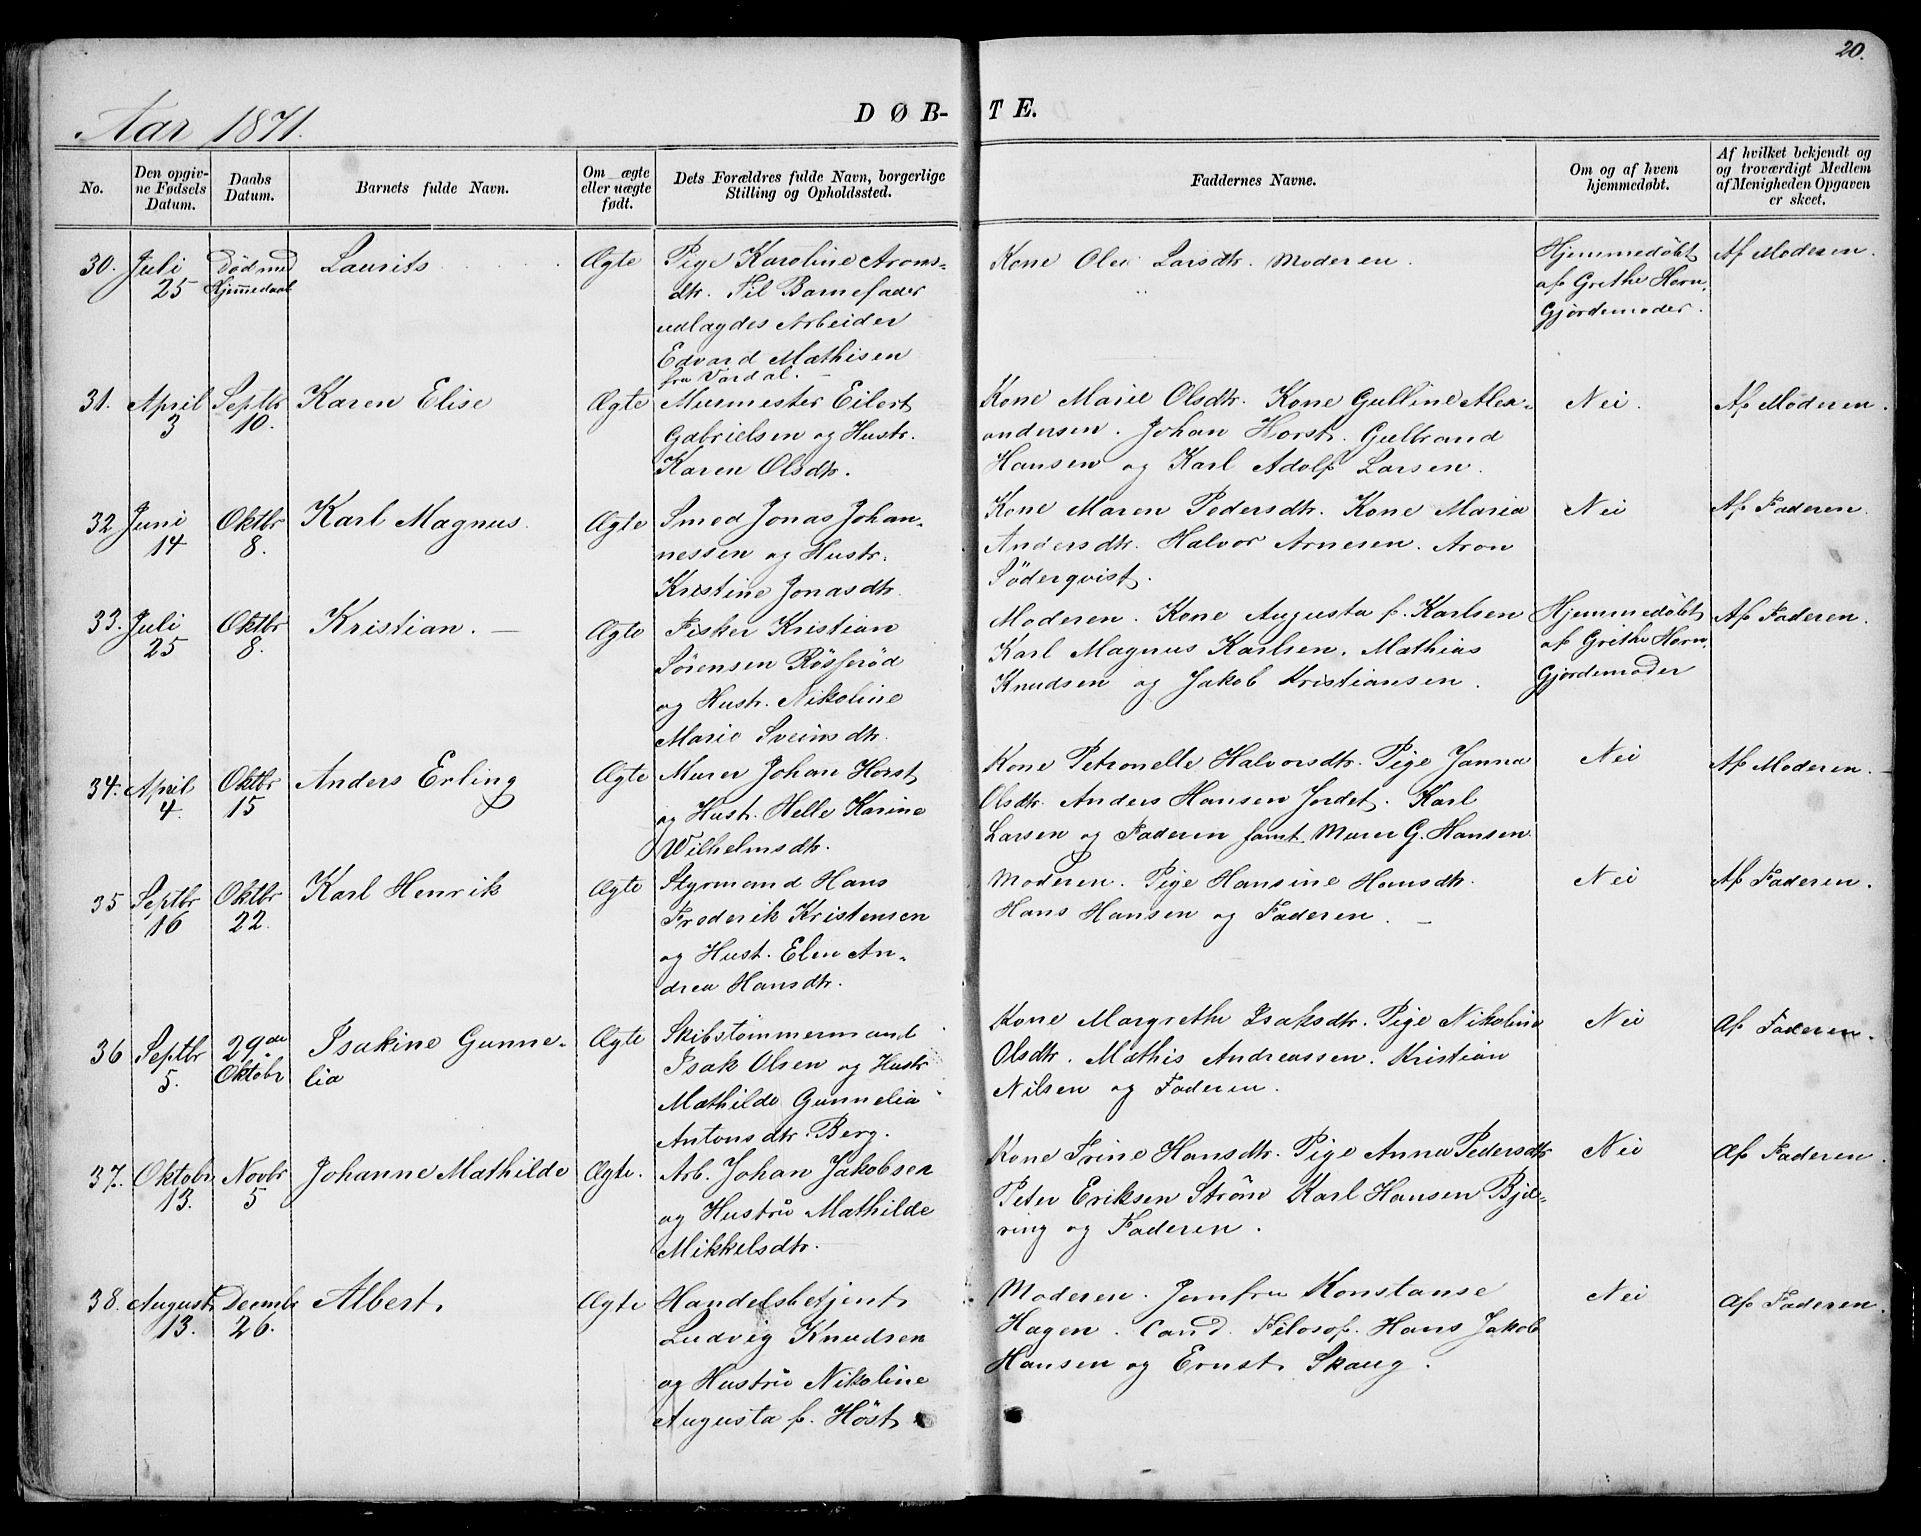 20.
Aar 1871.
DØB- TE.
No.
Den opgiv-
ne Fødsels
Datum.
Daabs
Datum.
Barnets fulde Navn.
Om ægte
eller uægte
født.
Dets Forældres fulde Navn, borgerlige
Stilling og Opholdssted.
Faddernes Navne.
Om og af hvem
hjemmedøbt.
Af hvilket bekjendt og
og troværdigt Medlem
af Menigheden Opgaven
er skeet.
30.
Juli
25
Død med
Hjemmedaab
Laurits
Ægte
Pige Karoline Arons-
dtr. Til Barnefader
udlagdes Arbeider
Edvard Mathisen
fra Vardal. –
Kone Olea Larsdtr. Moderen.
Hjemmedøbt
af Grethe Horn,
Gjordemoder.
Af Moderen.
31.
April
3
Septbr
10.
Karen Elise
Ægte
Murmester Eilert
Gabrielsen og Hustr.
Karen Olsdtr.
Kone Marie Olsdtr. Kone Gulline Alex-
andersen. Johan Horst. Gulbrand
Hansen og Karl Adolf Larsen.
Nei.
Af Moderen.
32
Juni
14
Oktbr
8.
Karl Magnus.
Ægte
Smed Jonas Johan-
nessen og Hustr.
Kristine Jonasdtr.
Kone Maren Pedersdtr. Kone Maria
Andersdtr. Halvor Arnesen. Aron
Söderqvist.
Nei
Af Faderen.
33.
Juli
25
Oktbr
8.
Kristian. –
Ægte
Fisker Kristian
Sørensen Røsserød
og Hustr. Nikoline
Marie Sveinsdtr.
Moderen. Kone Augusta f. Karlsen
Karl Magnus Karlsen. Mathias
Knudsen og Jakob Kristiansen.
Hjemmedøbt
af Grethe Horn,
Gjordemoder
Af Faderen.
34.
April
4.
Oktbr
15
Anders Erling
Ægte
Murer Johan Horst
og Hustr. Helle Karine
Wilhelmsdtr.
Kone Petronelle Halvorsdtr. Pige Janna
Olsdtr. Anders Hansen Jordet. Karl
Larsen og Faderen samt Murer G. Hansen
Nei
Af Moderen.
35
Septbr
16
Oktbr
22.
Karl Henrik
Ægte
Styrmand Hans
Frederik Kristensen
og Hust. Elen An-
drea Hansdtr.
Moderen. Pige Hansine Hansdtr.
Hans Hansen og Faderen. –
Nei
Af Faderen.
36
Septbr
5.
29de
Oktobr
Isakine Gunne-
lia
Ægte
Skibstømmermand
Isak Olsen og Hustr
Mathilde Gunnelia
Antonsdtr. Berg.
Kone Margrethe Isaksdtr. Pige Nikoline
Olsdtr. Mathis Andreassen. Kristian
Nilsen og Faderen.
Nei
Af Faderen.
37.
Oktobr
13.
Novbr
5
Johanne Mathilde
Ægte.
Arb. Johan Jakobsen
og Hustru Mathilde
Mikkelsdtr.
Kone Trine Hansdtr. Pige Anna Pedersdtr
Peter Eriksen Strøm Karl Hansen Bjer-
ring og Faderen.
Nei
Af Faderen.
38.
August
13.
Decmbr
26.
Albert.
Ægte
Handelsbetjent
Ludvig Knudsen
og Hustru Nikoline
Augusta f. Höst
Moderen. Jomfru Konstanse
Hagen. Cand. Filosof. Hans Jakob
Hansen og Ernst Skaug.
Nei
Af Faderen.